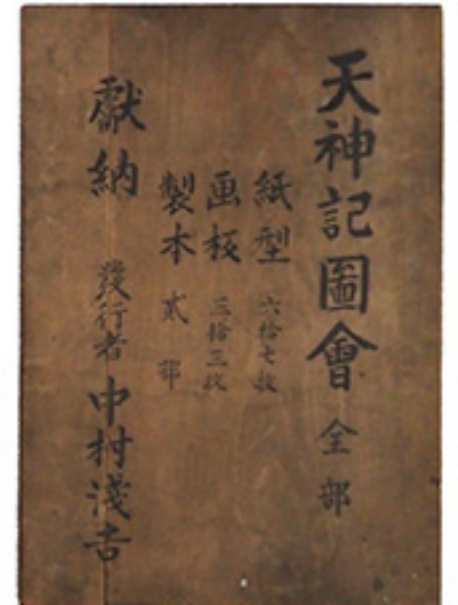 天神記圖會 全部
紙型 六拾七枚
画板 三拾三枚
製本 貳部
獻納 發行者 中村淺吉